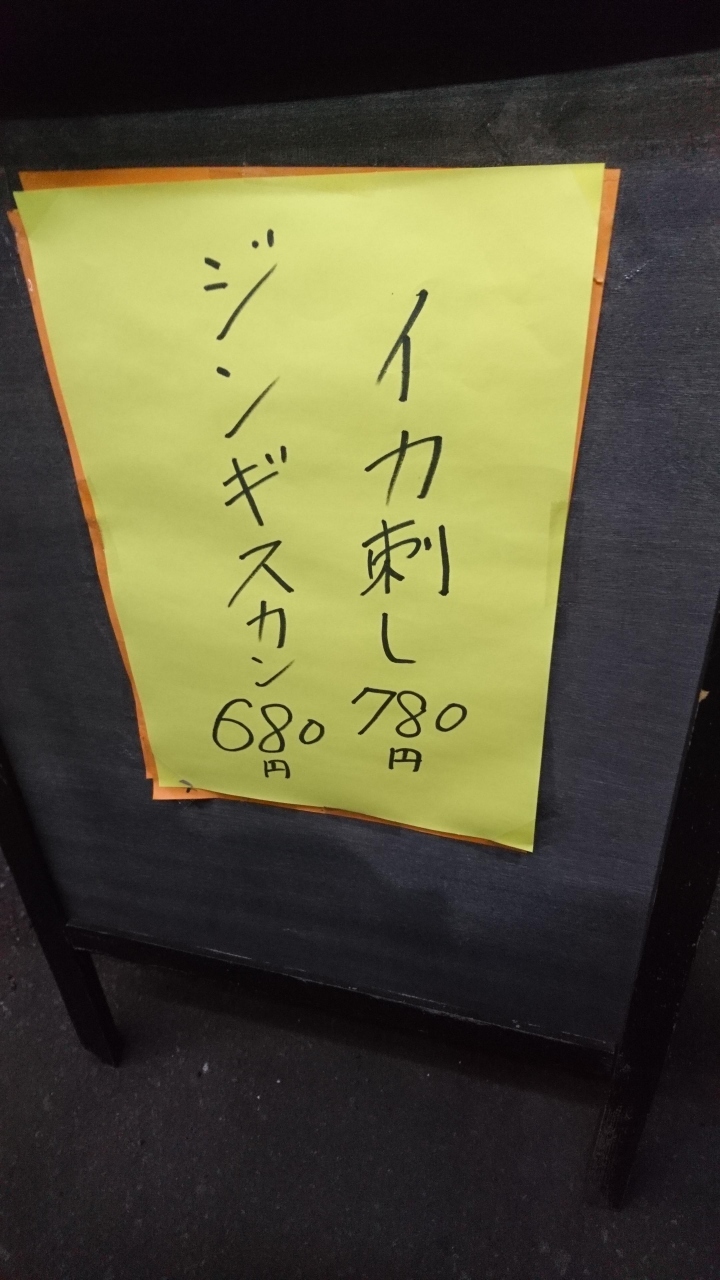 イカ刺し780円
ジンギスカン680円